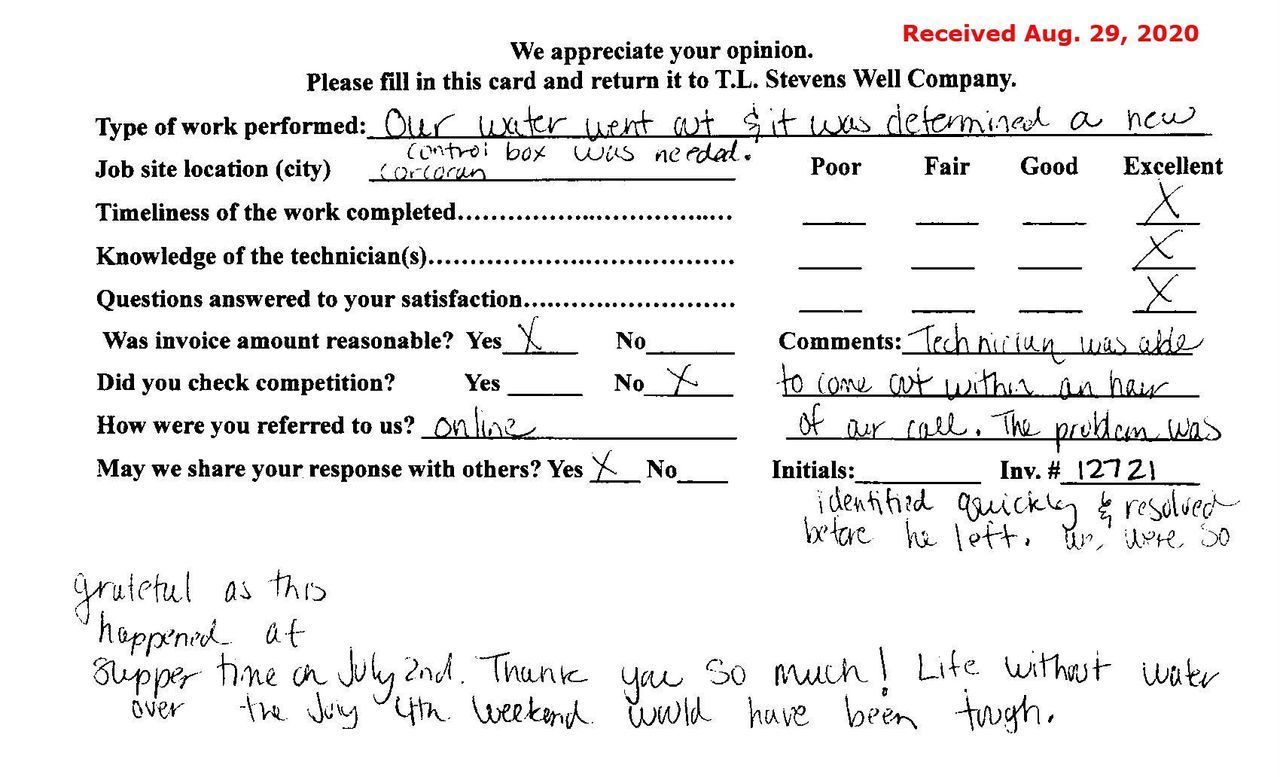 Received Aug. 29, 2020
We appreciate your opinion.
Please fill in this card and return it to T.L. Stevens Well Company.
Type of work performed: Our water went out & it was determined a new
control box was needed.
Job site location (city) corcoran
Poor Fair Good Excellent
Timeliness of the work completed................................. X
Knowledge of the technician(s).................................... X
Questions answered to your satisfaction......................... X
Was invoice amount reasonable? Yes X No
Did you check competition? Yes No X
How were you referred to us? online
May we share your response with others? Yes X No
Comments: Technician was able
to come out within an hour
of our call. The problem was
Initials: Inv. # 12721
identified quickly & resolved
before he left. We were so
grateful as this
happened at
supper time on July 2nd. Thank you so much! Life without water
over the July 4th weekend would have been tough.